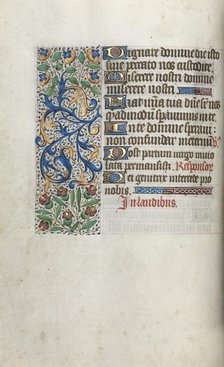 Dignare domine die isto
sine peccato nos custodire
Miserere nostri domine
miserere nostri
Fiat mia tua domine super nos
quemadmodum speravimus in te
In te domine speravi
non confundar in eternu
Post partum virgo invio
lata permansisti Responsor
Dei genitrix intercede pro
nobis
In laudibus